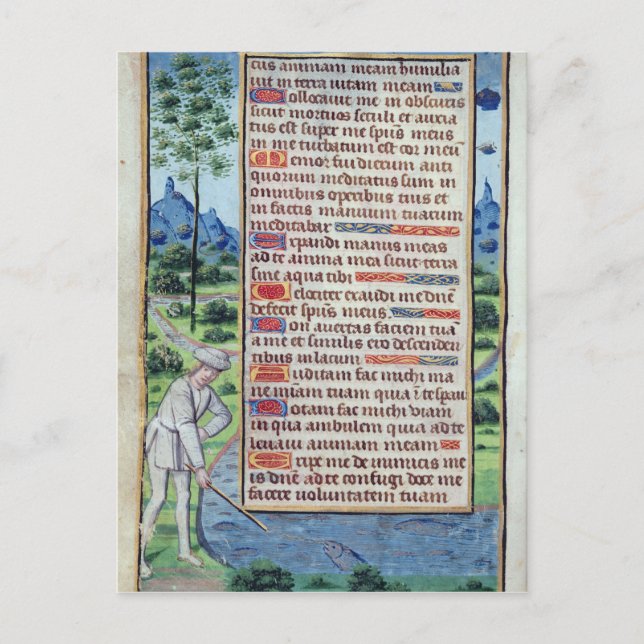 cus animam meam humilia
vit in terra vitam meam
Collocavit me in obscuris
sicut mortuos seculi et anxia
tus est super me spūs meus
in me turbatum est cor meū
Memor fui dierum anti
quorum meditatus sum in
omnibus operibus tuis et
in factis manuum tuarum
meditabar
Expandi manus meas
ad te anima mea sicut terra
sine aqua tibi
Velociter exaudi me dn̄e
defecit spūs meus
Non avertas faciem tuā
a me et similis ero descenden
tibus in lacum
Auditam fac michi ma
ne m̄iam tuam quia ī te spavi
Notam fac michi viam
in qua ambulem quia ad te
levavi animam meam
Eripe me de inimicis me
is dn̄e ad te confugi doce me
facere voluntatem tuam